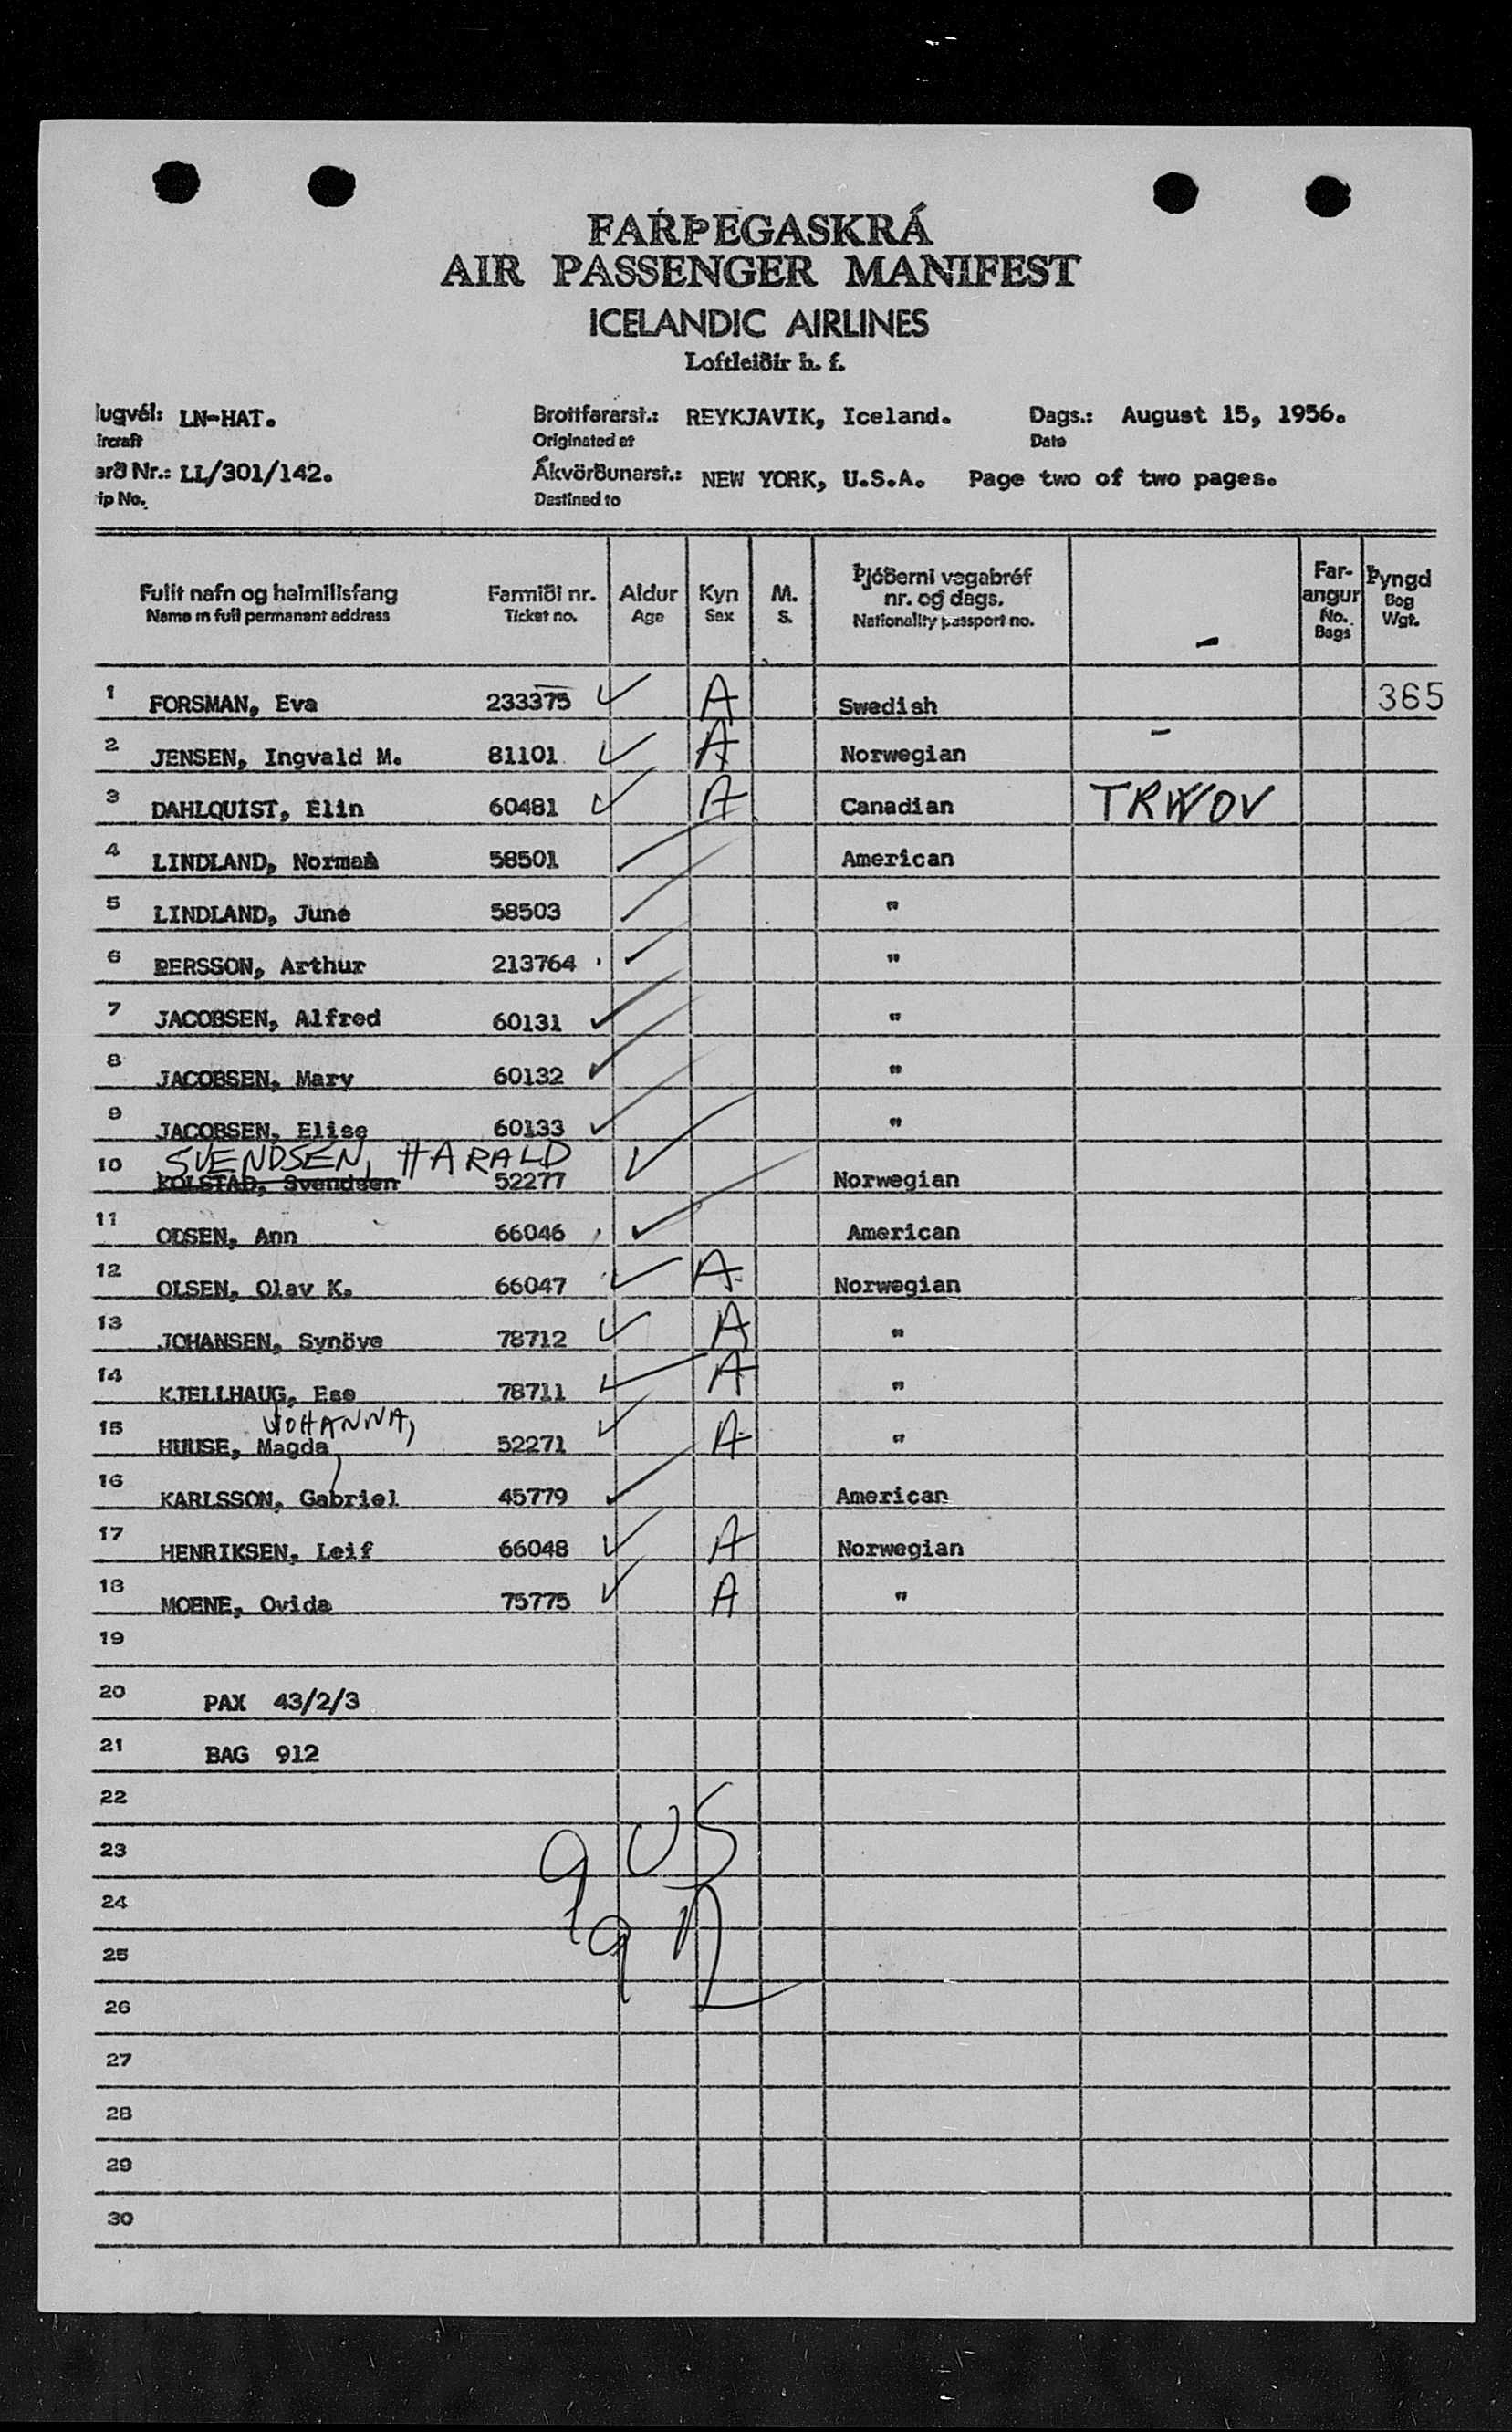 FARÞEGASKRÁ
AIR PASSENGER MANIFEST
ICELANDIC AIRLINES
Loftleiðir h. f.
lugvél: LN-HAT. Brottfararst.: REYKJAVIK, Iceland. Dags.: August 15, 1956.
ircraft Originated at Date
erð Nr.: LL/301/142. Ákvörðunarst.: NEW YORK, U.S.A. Page two of two pages.
ip No. Destined to
Fullt nafn og heimilisfang Farmiði nr. Aldur Kyn M. Þjóðerni vegabréf nr. og dags. Far-angur Þyngd
Name in full permanent address Ticket no. Age Sex S. Nationality passport no. No. Bags Bag Wgt.
1 FORSMAN, Eva 233375 A Swedish 365
2 JENSEN, Ingvald M. 81101 A Norwegian
3 DAHLQUIST, Elin 60481 A Canadian TRWOV
4 LINDLAND, Norman 58501 American
5 LINDLAND, June 58503 "
6 PERSSON, Arthur 213764 "
7 JACOBSEN, Alfred 60131 "
8 JACOBSEN, Mary 60132 "
9 JACOBSEN, Elise 60133 "
SVENDSEN, HARALD
10 KOLSTAD, Svendsen 52277 Norwegian
11 ODSEN, Ann 66046 American
12 OLSEN, Olav K. 66047 A Norwegian
13 JOHANSEN, Synöve 78712 A "
14 KJELLHAUG, Ese 78711 A "
JOHANNA,
15 HUUSE, Magda 52271 A "
16 KARLSSON, Gabriel 45779 American
17 HENRIKSEN, Leif 66048 A Norwegian
18 MOENE, Ovida 75775 A "
19
20 PAX 43/2/3
21 BAG 912
22
23
24
25
26
27
28
29
30